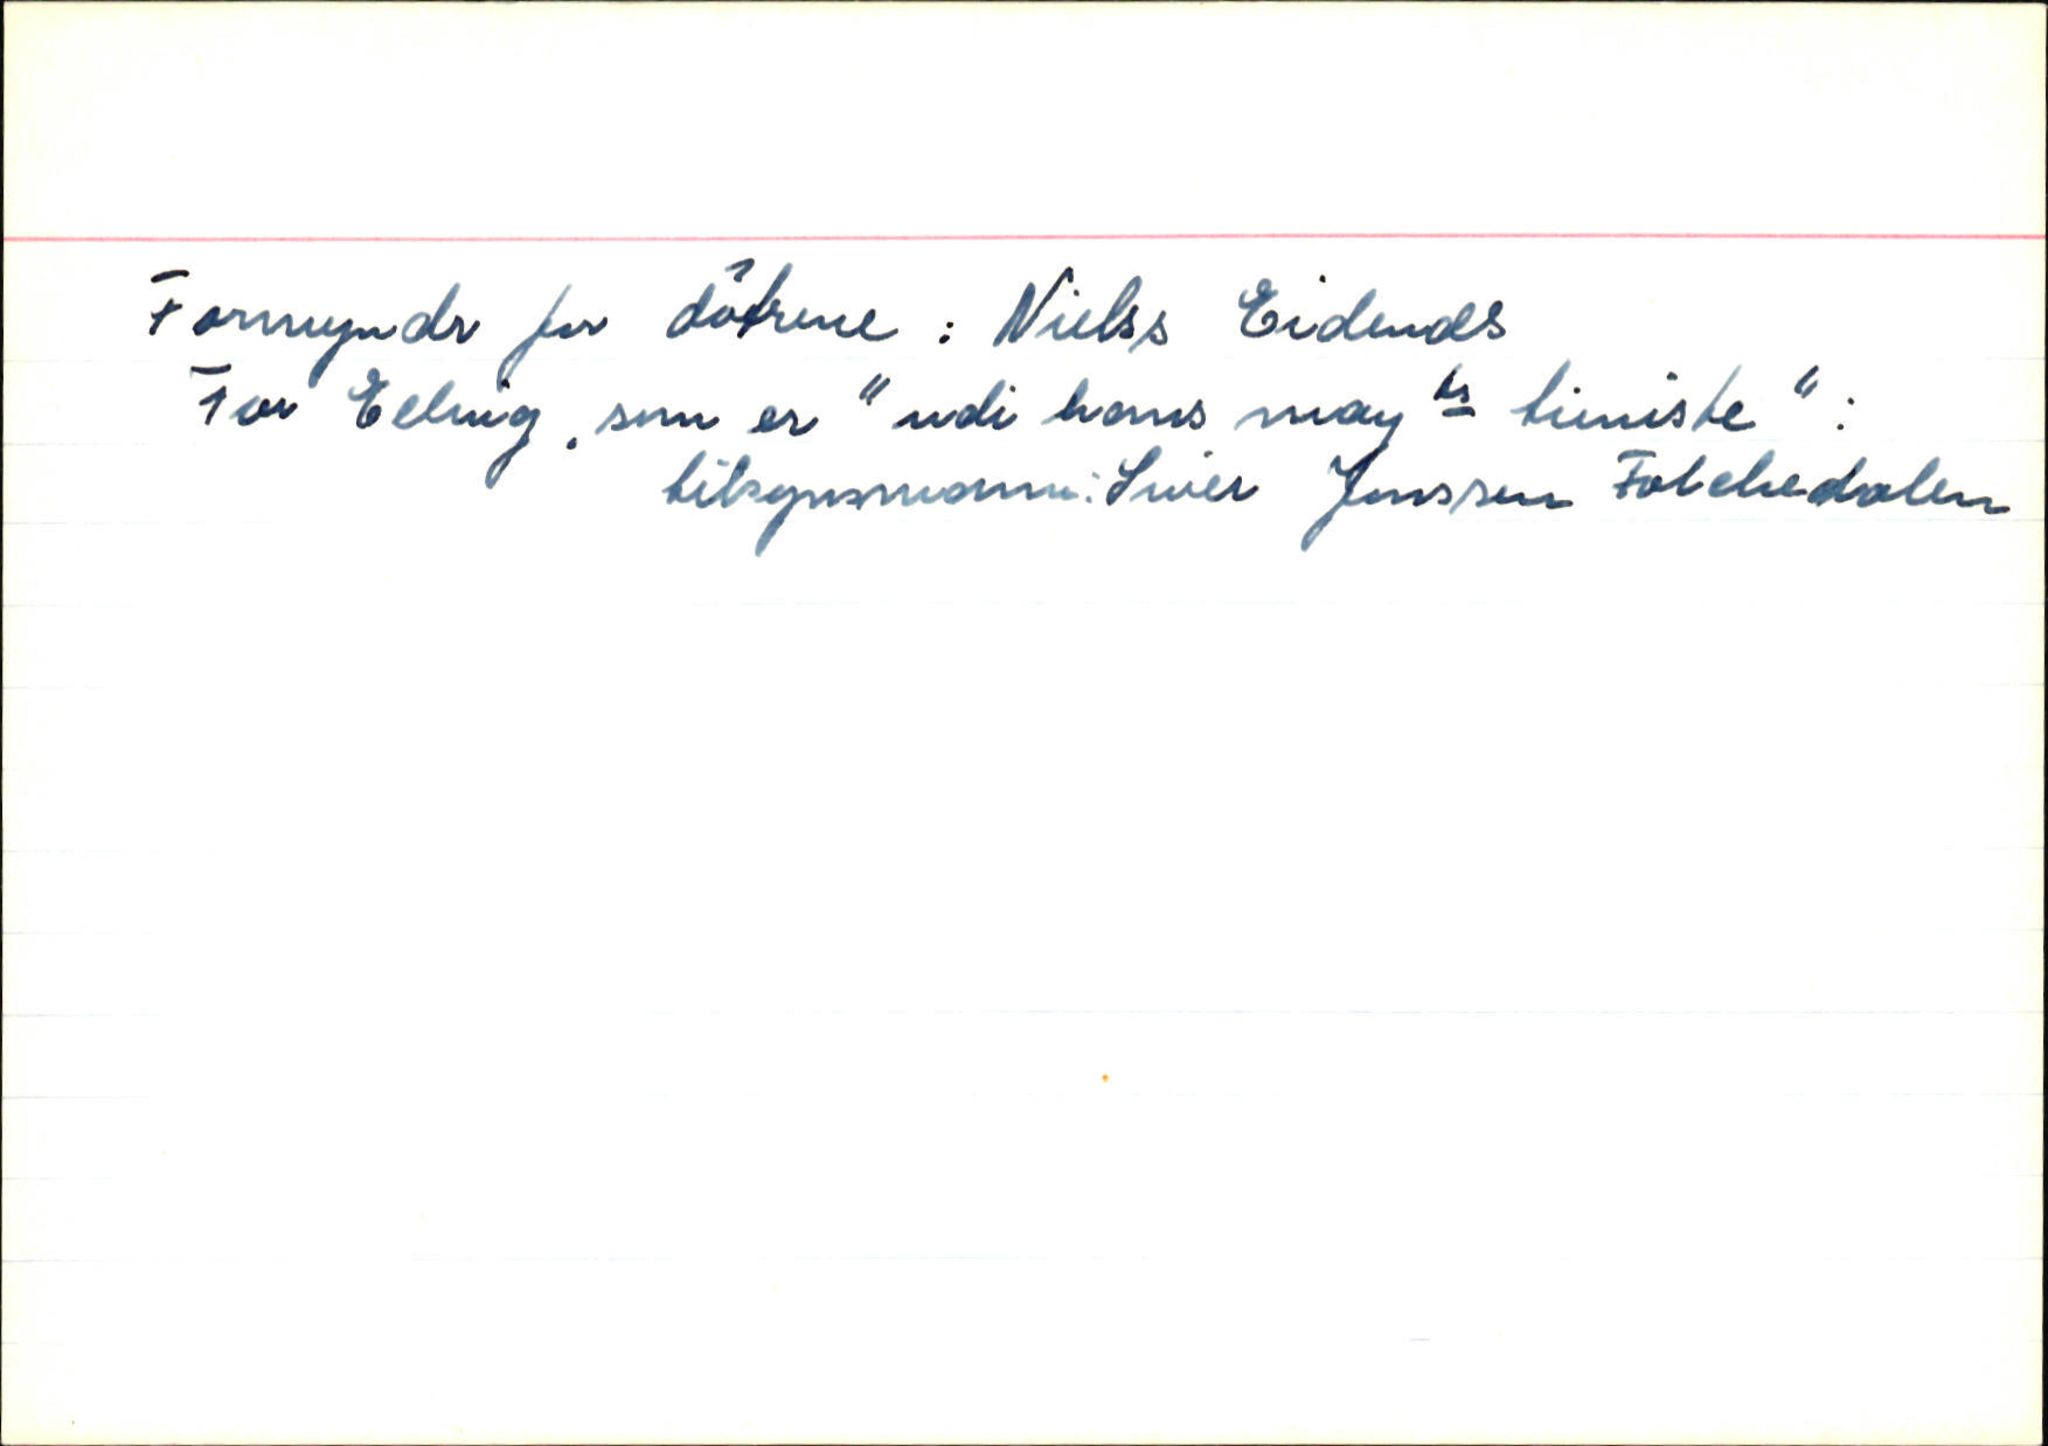 Formyndr for dötrene : Nielss Eidends
For Elling, som er "udi hans may ts tieniste" :
tilsynsmann: Siver Jonssen Folchedalen